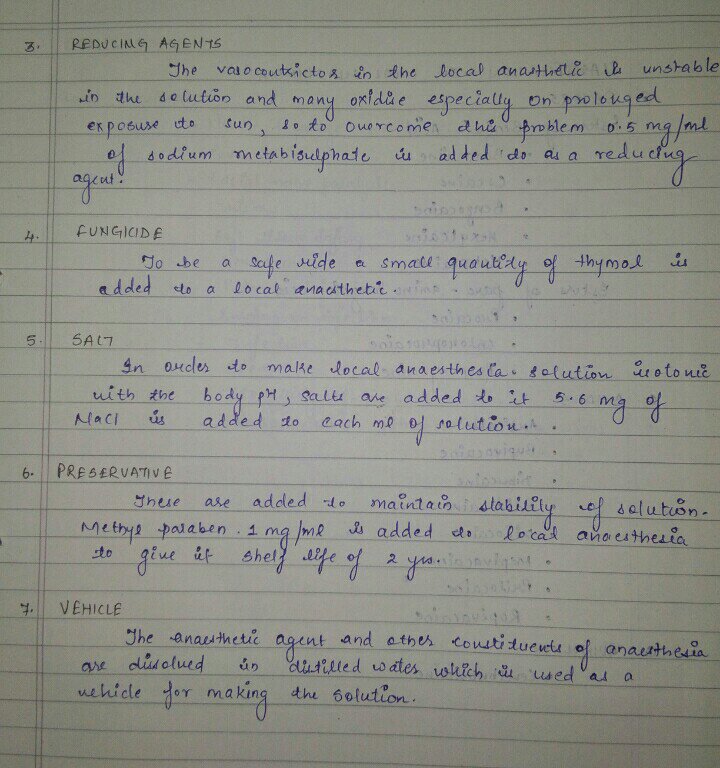 3. REDUCING AGENTS
The vasocoutrictor in the local anasthetic is unstable
in the solution and many oxidise especially on prolonged
exposuse to sun, so to overcome this problem 0.5 mg/ml
of sodium metabisulphate is added to as a reducing
agent.
4. FUNGICIDE
To be a safe side a small quantity of thymol is
added to a local anaesthetic.
5. SALT
In order to make local anaesthesia. solution isotonic
with the body pH, salts are added to it 5.6 mg of
NaCl is added to each ml of solution.
6. PRESERVATIVE
These are added to maintain stability of solution.
Methyl paraben. 1 mg/ml is added to local anaesthesia
to give it shelf life of 2 yrs.
7. VEHICLE
The anaesthetic agent and other constituents of anaesthesia
are dissolved in distilled water which is used as a
vehicle for making the solution.